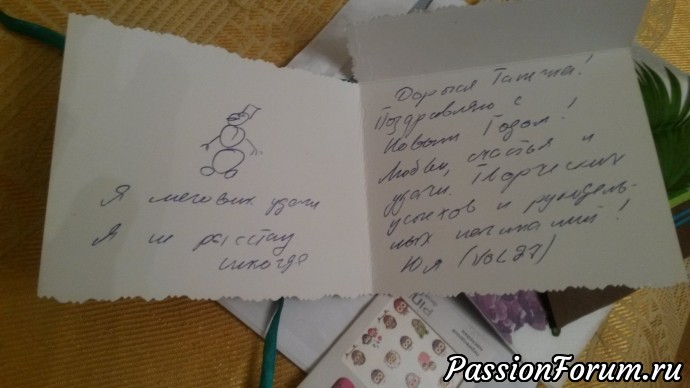 Я меговик удачи
Я не расстаю
никогда
Дорогая Танечка!
Поздравляю с
Новым Годом!
Любви, счастья и
удачи. Творческих
успехов и рукодель-
ных начинаний!
Юля
PassionForum.ru